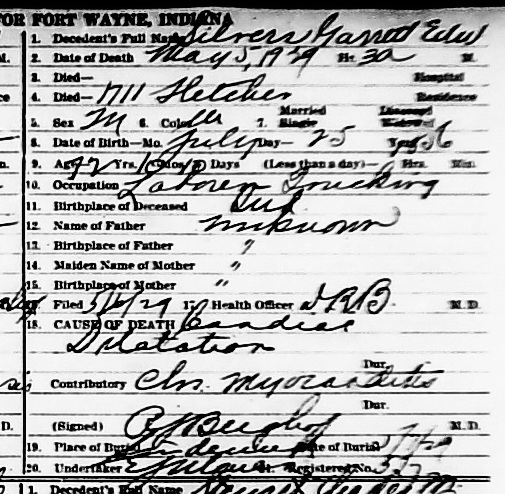 FOR FORT WAYNE, INDIANA
1. Decedent's Full Name Silvers Garrett Edw
2. Date of Death May 5, 1929 Hr. 3 a M.
3. Died— Hospital
4. Died— 1711 Fletcher Residence
5. Sex M 6. Color W 7. Married Single Divorced Widowed
8. Date of Birth—Mo. July Day— 25 Year 56
9. Age 72 Yrs. Mos. Days (Less than a day)— Hrs. Min.
10. Occupation Laborer Trucking
11. Birthplace of Deceased Ind
12. Name of Father unknown
13. Birthplace of Father "
14. Maiden Name of Mother "
15. Birthplace of Mother "
Filed 5/6/29 17. Health Officer M. D.
18. CAUSE OF DEATH Cardiac
Dilatation
Dur.
Contributory Chr. Myocarditis
Dur.
(Signed) M. D.
19. Place of Burial Lindenwood Date of Burial
20. Undertaker Registered No.
1. Decedent's Full Name